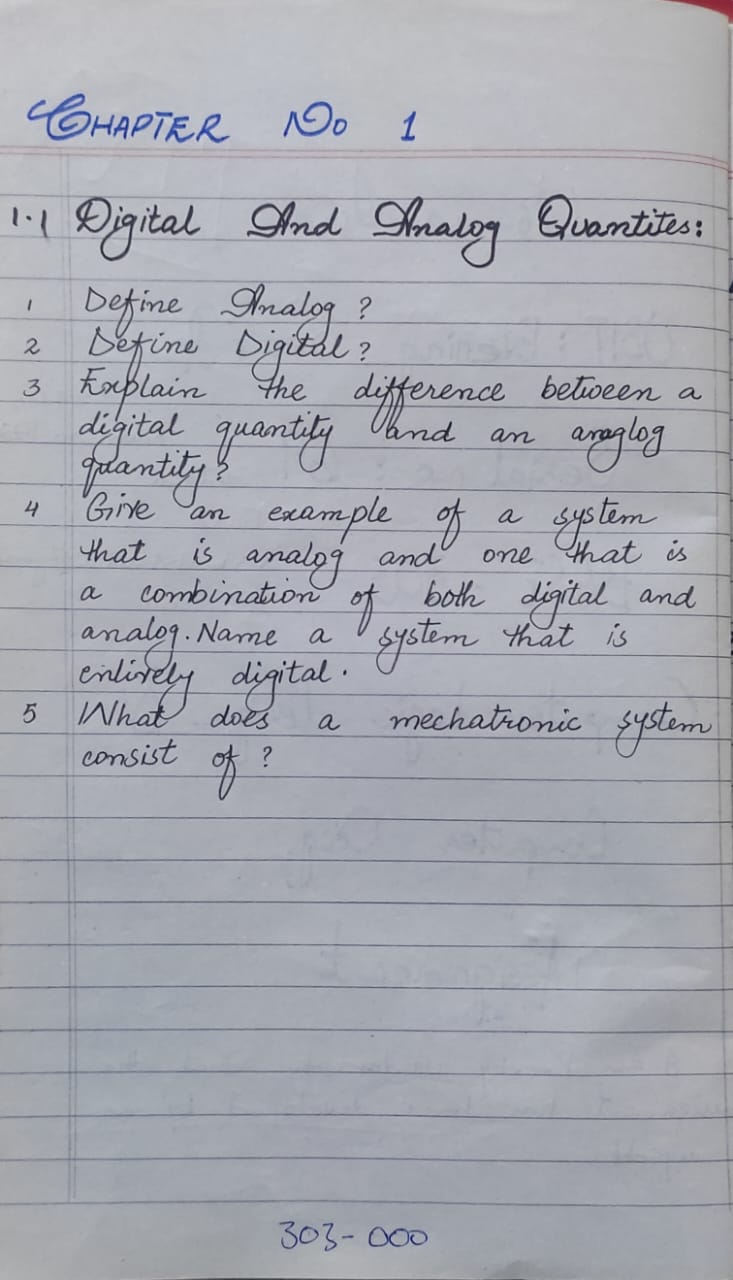 CHAPTER No 1
1.1 Digital And Analog Quantites:
1 Define Analog?
2 Define Digital?
3 Explain the difference between a
digital quantity and an anaglog
quantity?
4 Give an example of a system
that is analog and one that is
a combination of both digital and
analog. Name a system that is
entirely digital.
5 What does a mechatronic system
consist of?
303-000